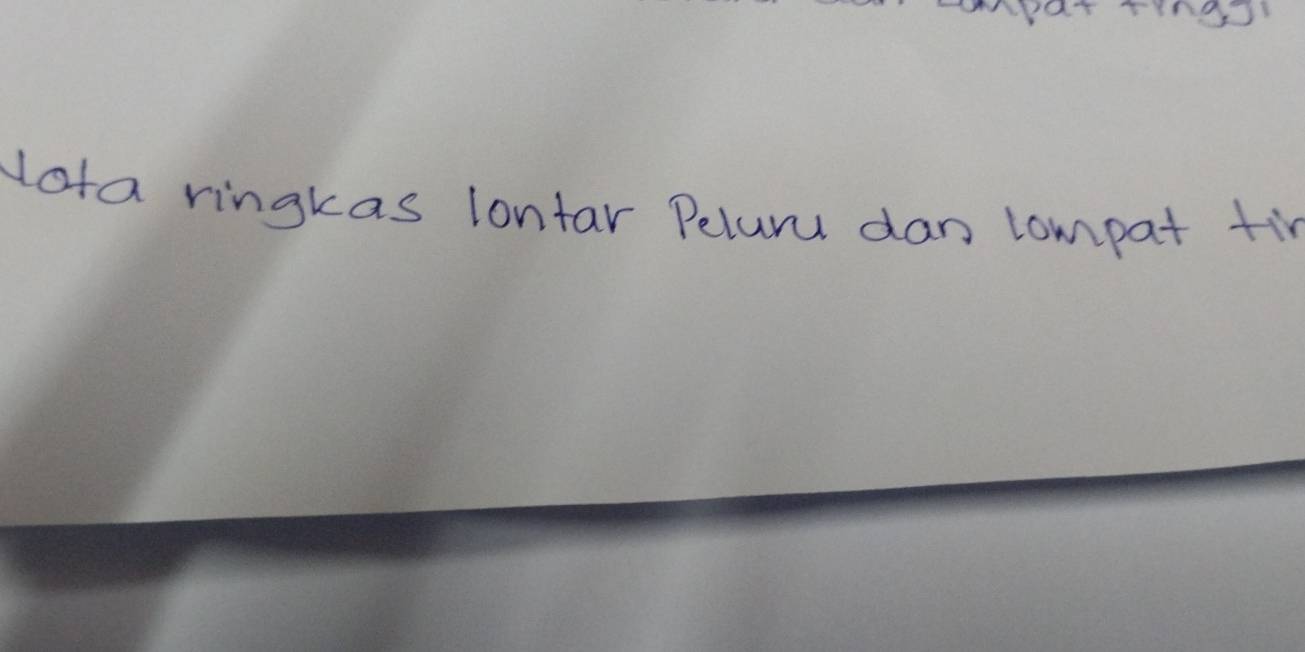 lompat tinggi
Nota ringkas lontar Peluru dan lompat tin